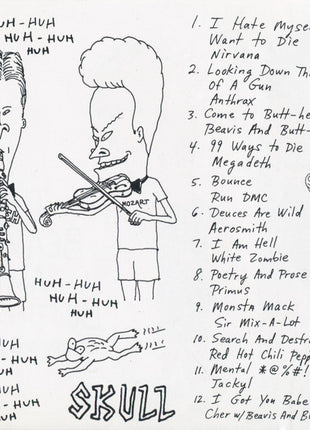 HUH
HUH-HUH
HUH-HUH
HUH
MOZART
HUH-HUH
HUH-HUH
HUH
SKULL
1. I Hate Myself
Want to Die
Nirvana
2. Looking Down Th
Of A Gun
Anthrax
3. Come to Butt-he
Beavis And Butt-
4. 99 Ways to Die
Megadeth
5. Bounce
Run DMC
6. Deuces Are Wild
Aerosmith
7. I Am Hell
White Zombie
8. Poetry And Prose
Primus
9. Monsta Mack
Sir Mix-A-Lot
10. Search And Destr
Red Hot Chili Pepp
11. Mental *@%#!
Jackyl
12. I Got You Babe
Cher w/Beavis And Bu